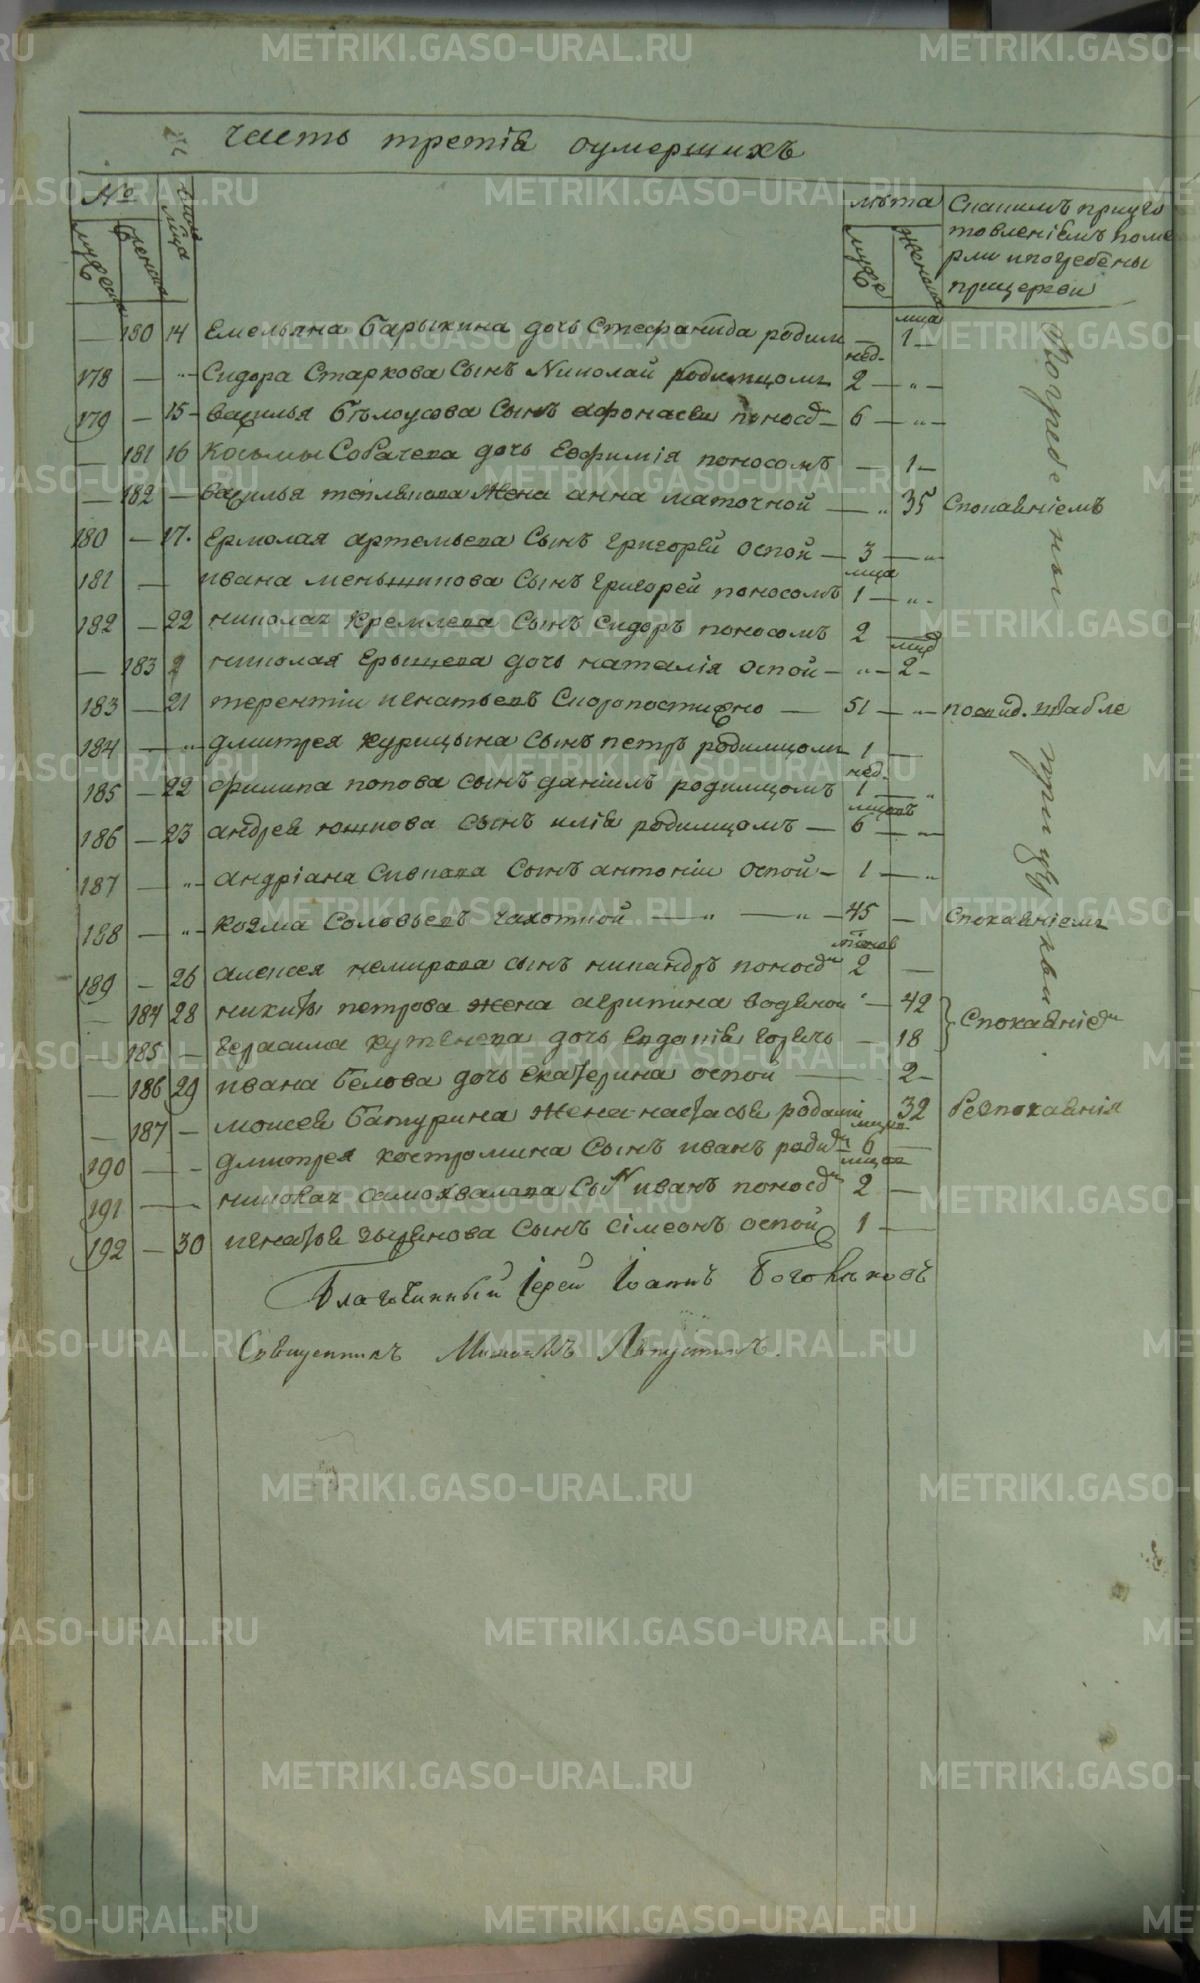 METRIKI.GASO-URAL.RU
часть третія оумершихъ
№ лѣта Съ какимъ пригуго
товленіемъ поме
рли и погребены
при церкви
мужеска женска числа мѣсяца муже женска
мца
— 180 14 Емельяна Барыкина дочь Стефанида родим — 1 —
нед.
178 — „ Сидора Старкова Сынъ Николай родимцомъ 2 — „ —
179 — 15 василья Бѣлоусова Сынъ афонасей поносом 6 — „ —
— 181 16 Косьмы Собачева дочь Еофимія поносомъ — 1 —
— 182 — василья тепляпова Жена анна маточной — „ 35 Спокаяніемъ
180 — 17. Ермолая артемьева Сынъ григорей оспой — 3 — „
мца
181 — ивана меньшикова Сынъ григорей поносомъ 1 — „ —
182 — 22 николая Кремлева Сынъ Сидоръ поносомъ 2 —
мцд
— 183 2 николая Ерышева дочь наталія оспой — „ — 2 —
183 — 21 терентіи игнатьевъ Скоропостижно — 51 — „ —
184 — „ дмитрея Курицына сынъ петръ родимцомъ 1 —
нед.
185 — 22 филипа попова сынъ даніилъ родимцомъ 1 — „
мцовъ
186 — 23 андрея юшкова сынъ илія родимцомъ — 6 — —
187 — „ андріана Сивкова Сынъ антоніи оспой — 1 — „
188 — „ козма Соловьевъ чахотной — „ — „ — 45 — Спокаяніемъ
189 — 26 алексея немирова сынъ никандръ поносом 2 —
— 184 28 никиты петрова жена агрипина водяной — 42
Спокаяніем
— 185 — герасима кутенева дочь Евдокія горячь — 18
— 186 29 ивана Белова дочь екатерина оспой — 2 —
— 187 — моисея Батурина Жена настасья родами 32 безпокаянія
мцов
190 — „ дмитрея костромина сынъ иванъ родим 6 —
мцов
191 — николая самохвалова Сынъ иванъ поносом 2 —
192 — 30 игнатья зырянова сынъ сімеонъ оспой 1 —
Погребены при церкви.
Благочинный Іерей Іоаннъ Боголѣповъ
Священникъ Михаилъ Лапустинъ.